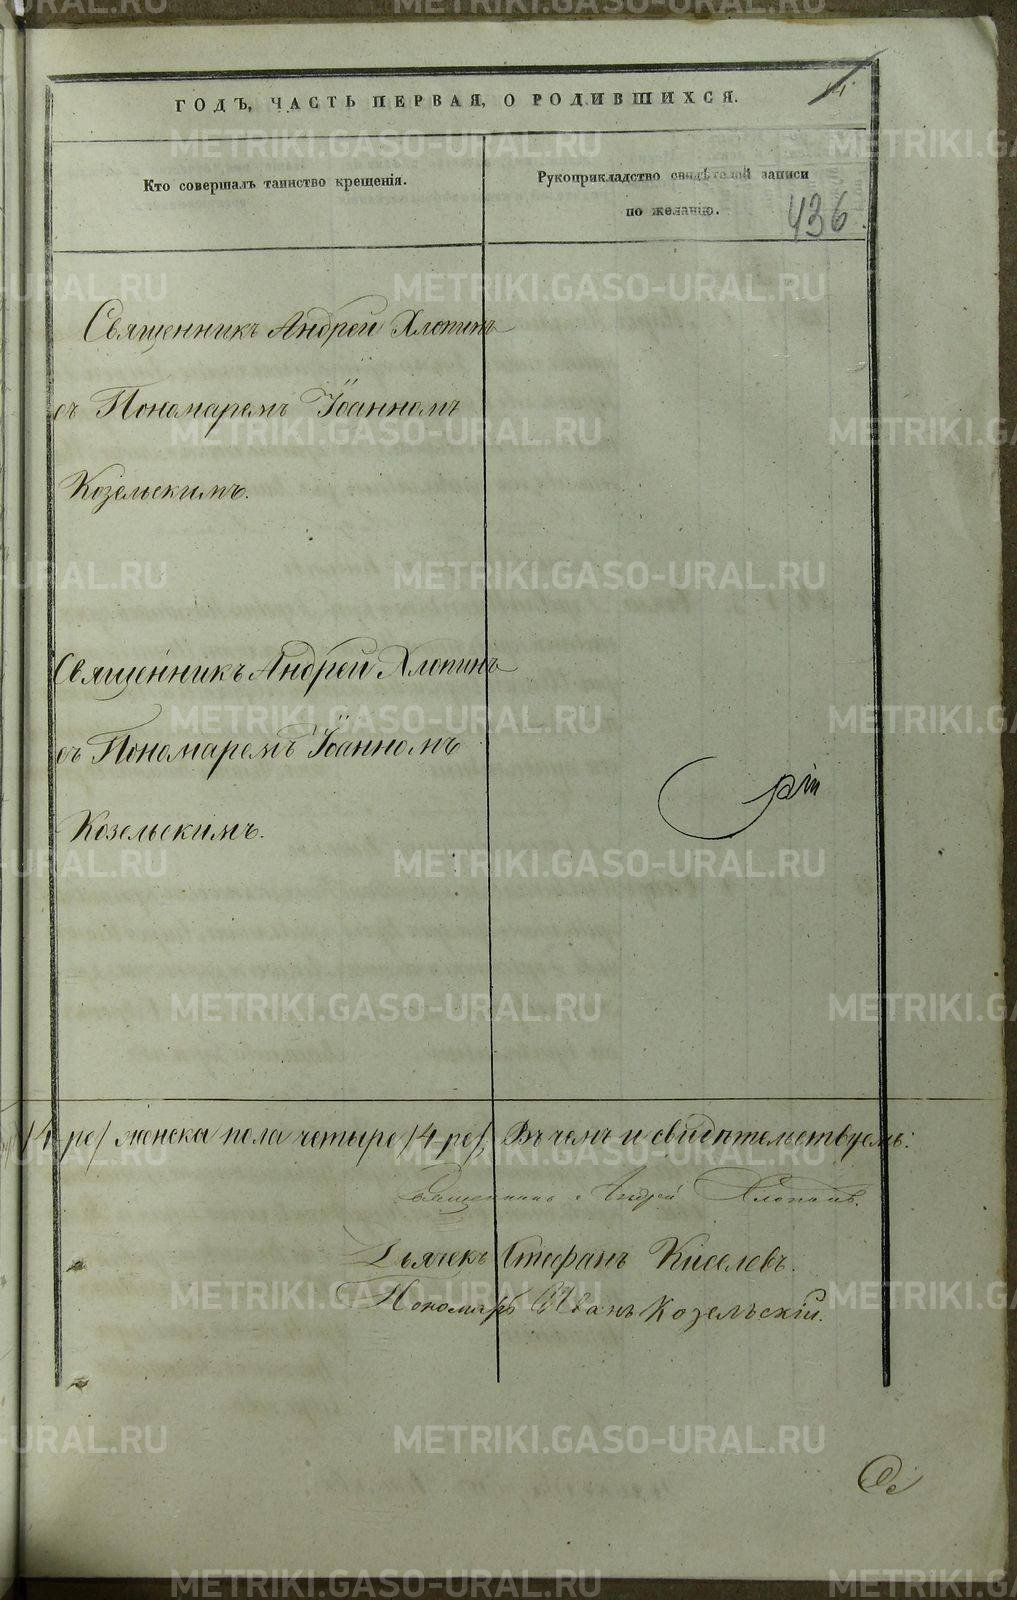 ГОДЪ, ЧАСТЬ ПЕРВАЯ, О РОДИВШИХСЯ.
Кто совершалъ таинство крещенія.
Рукоприкладство свидѣтелей записи
по желанію.
436
Священникъ Андрей Хлопинъ
съ Пономаремъ Іоанномъ
Козельскимъ.
Священникъ Андрей Хлопинъ
съ Пономаремъ Іоанномъ
Козельскимъ.
/4-ре/ женска пола четыре /4-ре/. Въ чемъ и свидѣтельствуемъ:
Священникъ Андрей Хлопинъ.
Дьячекъ Стефанъ Киселевъ.
Пономарь Иванъ Козельскій.
METRIKI.GASO-URAL.RU